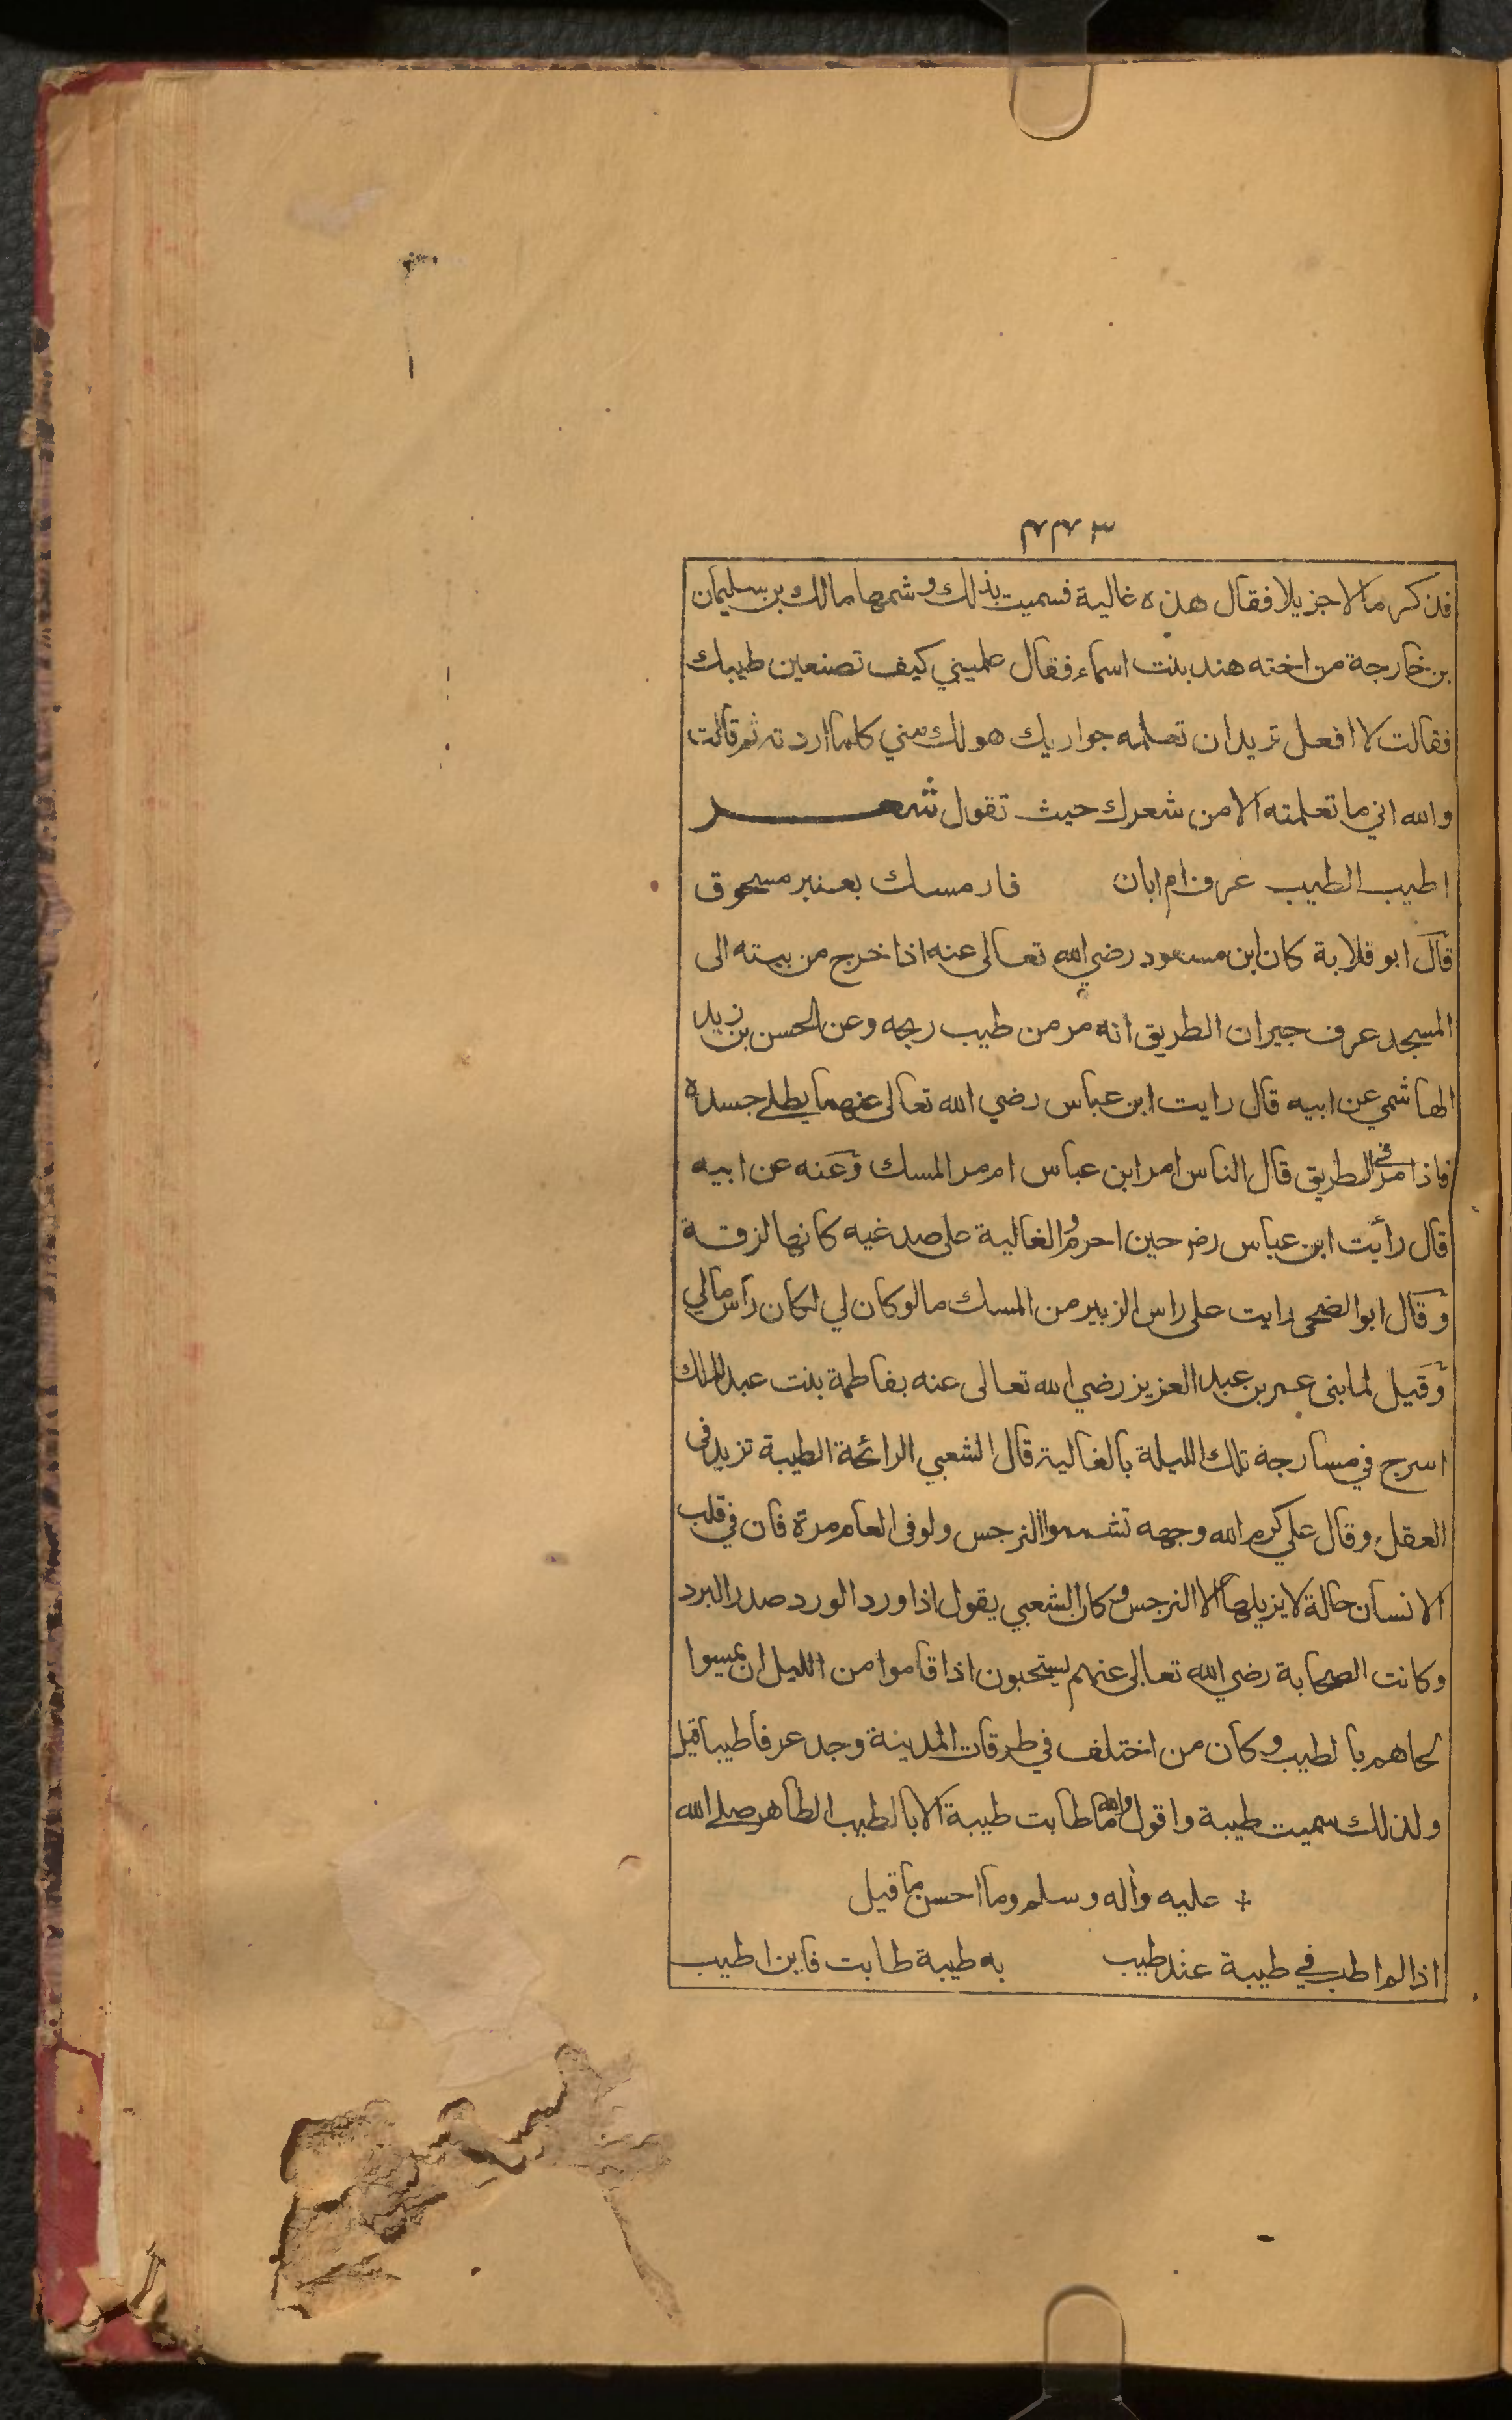 ٣٤٤
فذكر مالا جزيلا فقال هذه غالية فسميت بذلك وشمها مالك بن سليمان
بن خارجة من اخته هند بنت اسماء فقال علميني كيف تصنعين طيبك
فقالت لا افعل تريد ان تعلمه جواريك هو لك مني كلما اردته ثم قالت
والله اني ما تعلمته الا من شعرك حيث تقول شعر
اطيب الطيب عرف ام ابان فار مسك بعنبر مسحوق
قال ابو قلابة كان ابن مسعود رضي الله تعالى عنه اذا خرج من بيته الى
المسجد عرف جيران الطريق انه مر من طيب ريحه وعن الحسن بن زيد
الهاشمي عن ابيه قال رايت ابن عباس رضي الله تعالى عنهما يطلي جسده
فاذا مر في الطريق قال الناس امر ابن عباس ام مر المسك وعنه عن ابيه
قال رأيت ابن عباس رضـ حين احرم والغالية على صدغيه كانها لزقة
وقال ابو الضحى رايت على راس الزبير من المسك مالو كان لي لكان راس مالي
وقيل لما بنى عمر بن عبد العزيز رضي الله تعالى عنه بفاطمة بنت عبد الملك
اسرج في مسارجة تلك الليلة بالغالية قال الشعبي الرائحة الطيبة تزيد فى
العقل وقال علي كرم الله وجهه تشمموا النرجس ولو فى العام مرة فان في قلب
الانسان حالة لا يزيلها الا النرجس وكان الشعبي يقول اذا ورد الورد صدر البرد
وكانت الصحابة رضي الله تعالى عنهم يستحبون اذا قاموا من الليل ان يمسوا
لحاهم بالطيب وكان من اختلف في طرقات المدينة وجد عرفا طيبا قيل
ولذلك سميت طيبة واقول والله ما طابت طيبة الا بالطيب الطاهر صلى الله
+ عليه وآله وسلم وما احسن ما قيل
اذا لم اطب في طيبة عند طيب به طيبة طابت فاين اطيب